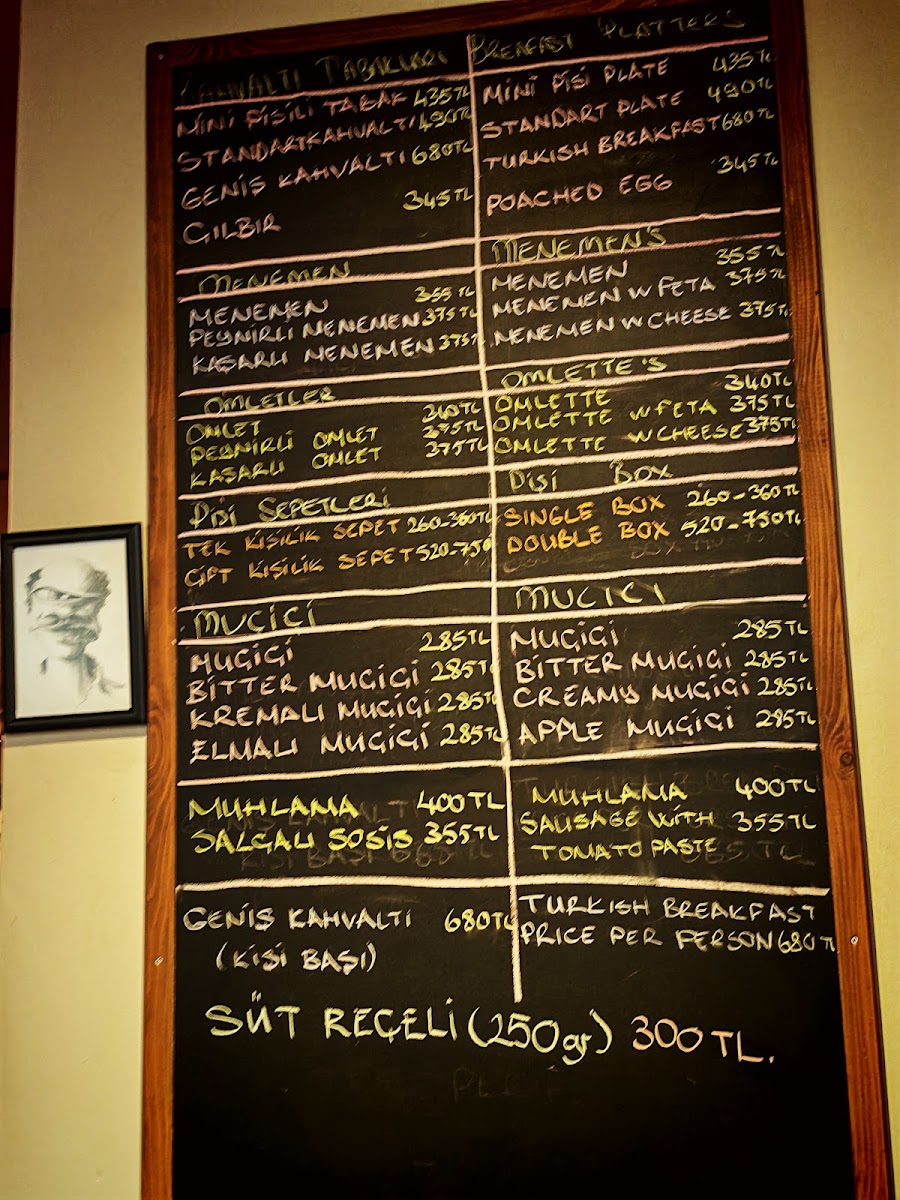 KAHVALTI TABAKLARI
MİNİ PİŞİLİ TABAK 435TL
STANDARTKAHVALTI 490TL
GENİŞ KAHVALTI 680TL
ÇILBIR 345TL
MENEMEN
MENEMEN 355TL
PEYNİRLİ MENEMEN 375TL
KAŞARLI MENEMEN 375TL
OMLETLER
OMLET 340TL
PEYNİRLİ OMLET 375TL
KAŞARLI OMLET 375TL
PİŞİ SEPETLERİ
TEK KİŞİLİK SEPET 260-360TL
ÇİFT KİŞİLİK SEPET 520-750
MUCİCİ
MUCİCİ 285TL
BİTTER MUCİCİ 285TL
KREMALI MUCİCİ 285TL
ELMALI MUCİCİ 285TL
MUHLAMA 400TL
SALÇALI SOSİS 355TL
GENİŞ KAHVALTI 680TL
(KİŞİ BAŞI)
BREAFAST PLATTER'S
MİNİ PİŞİ PLATE 435TL
STANDART PLATE 490TL
TURKISH BREAKFAST 680TL
POACHED EGG 345TL
MENEMEN'S
MENEMEN 355TL
MENEMEN W FETA 375TL
MENEMEN W CHEESE 375TL
OMLETTE'S
OMLETTE 340TL
OMLETTE W FETA 375TL
OMLETTE W CHEESE 375TL
PİŞİ BOX
SINGLE BOX 260-360TL
DOUBLE BOX 520-750TL
MUCICI
MUCİCİ 285TL
BİTTER MUCİCİ 285TL
CREAMY MUCİCİ 285TL
APPLE MUCİCİ 285TL
MUHLAMA 400TL
SAUSAGE WİTH 355TL
TOMATO PASTE
TURKISH BREAKFAST
PRICE PER PERSON 680TL
SÜT REÇELİ (250gr) 300 TL.